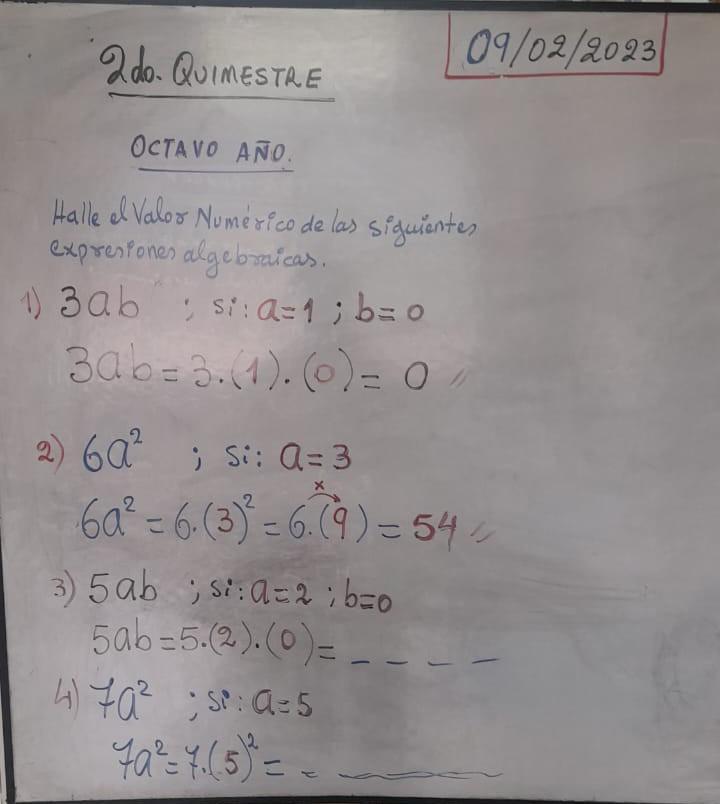 09/02/2023
2do. QUIMESTRE
OCTAVO AÑO.
Halle el Valor Numérico de las siguientes
expresiones algebraicas.
1) 3ab ; si: a=1 ; b=0
3ab = 3.(1).(0) = 0 //
2) 6a² ; si: a=3
x
6a² = 6.(3)² = 6.(9) = 54 //
3) 5ab ; si: a=2 ; b=0
5ab = 5.(2).(0) = _ _ _ _
4) 7a² ; si: a=5
7a² = 7.(5)² = _ ______